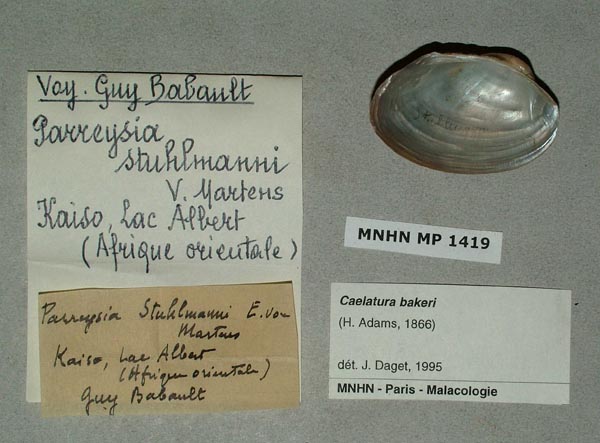 Voy. Guy Babault
Parreysia
stuhlmanni
V. Martens
Kaiso, Lac Albert
(Afrique orientale)
Parreysia Stuhlmanni E. von
Martens
Kaiso, Lac Albert
(Afrique orientale)
Guy Babault
MNHN MP 1419
Caelatura bakeri
(H. Adams, 1866)
dét. J. Daget, 1995
MNHN - Paris - Malacologie